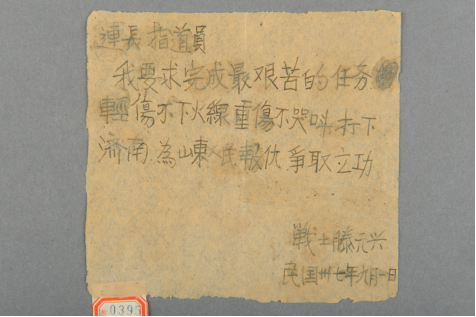 連長指道員
我要求完成最艰苦的任务
輕傷不下火線重傷不哭叫打下
济南為山東人民報仇爭取立功
戰士滕元兴
民国卅七年九月一日
0393